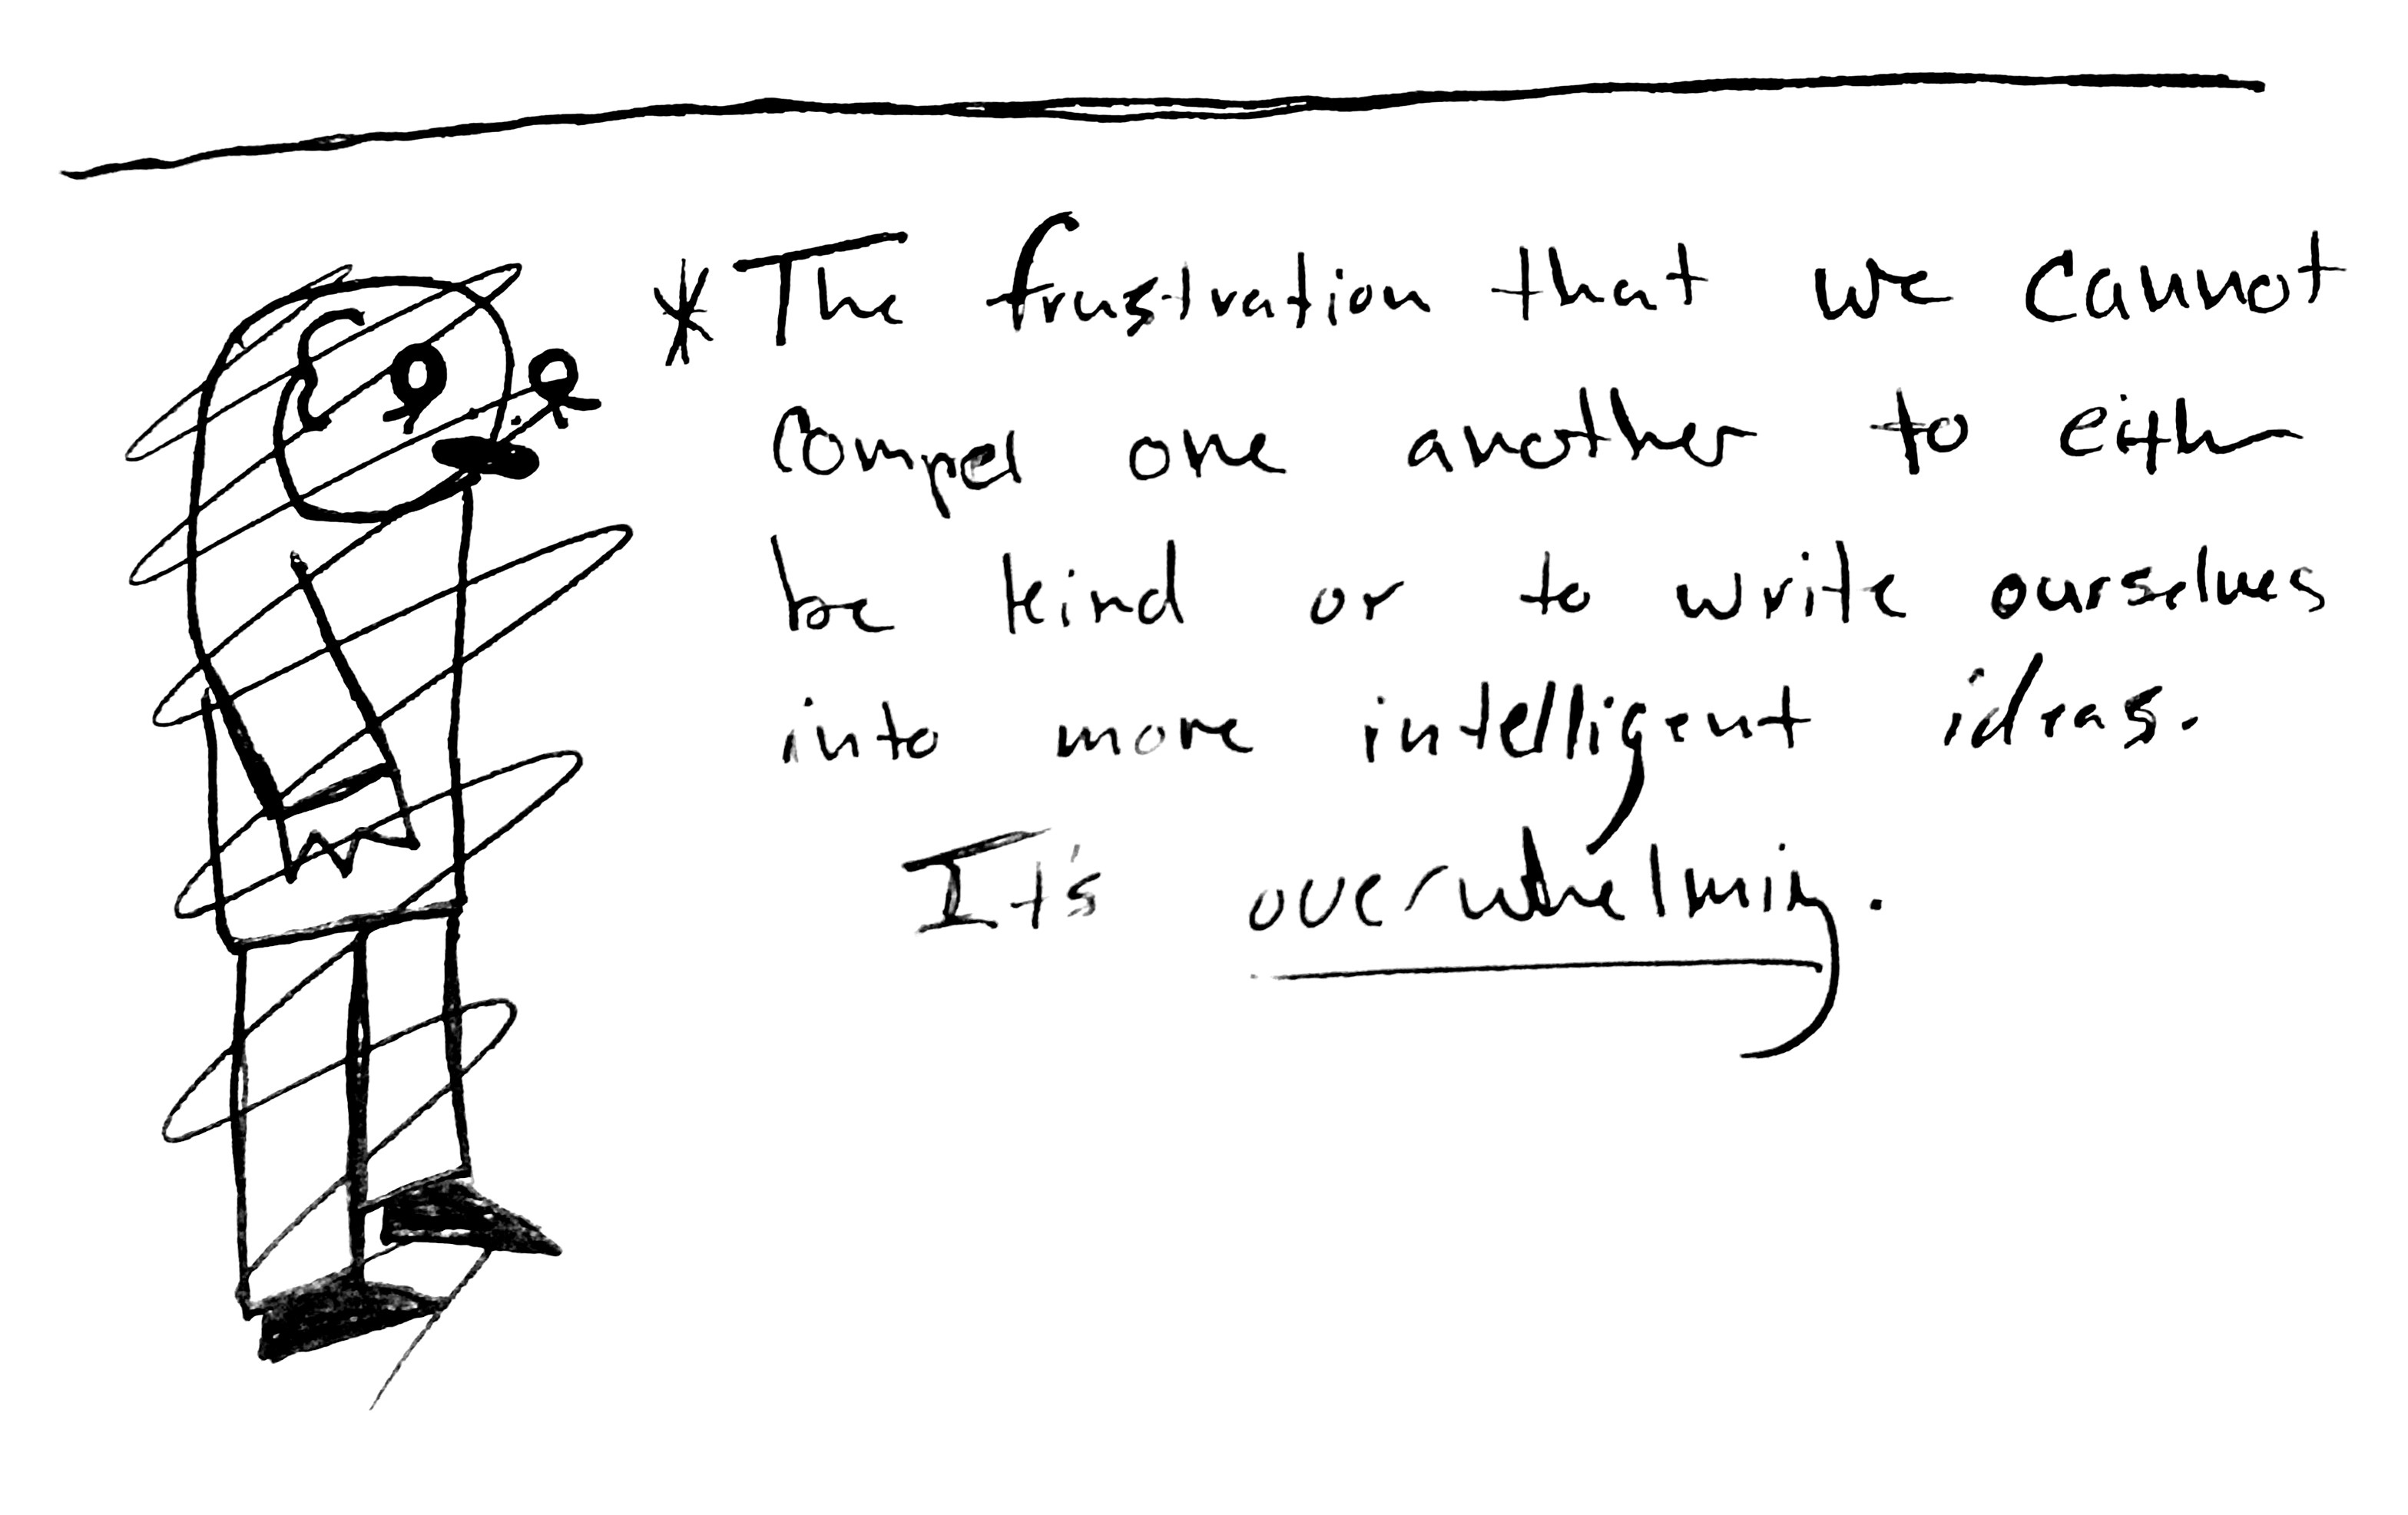 * The frustration that we cannot
compel one another to either
be kind or to write ourselves
into more intelligent ideas.
It's overwhelming.